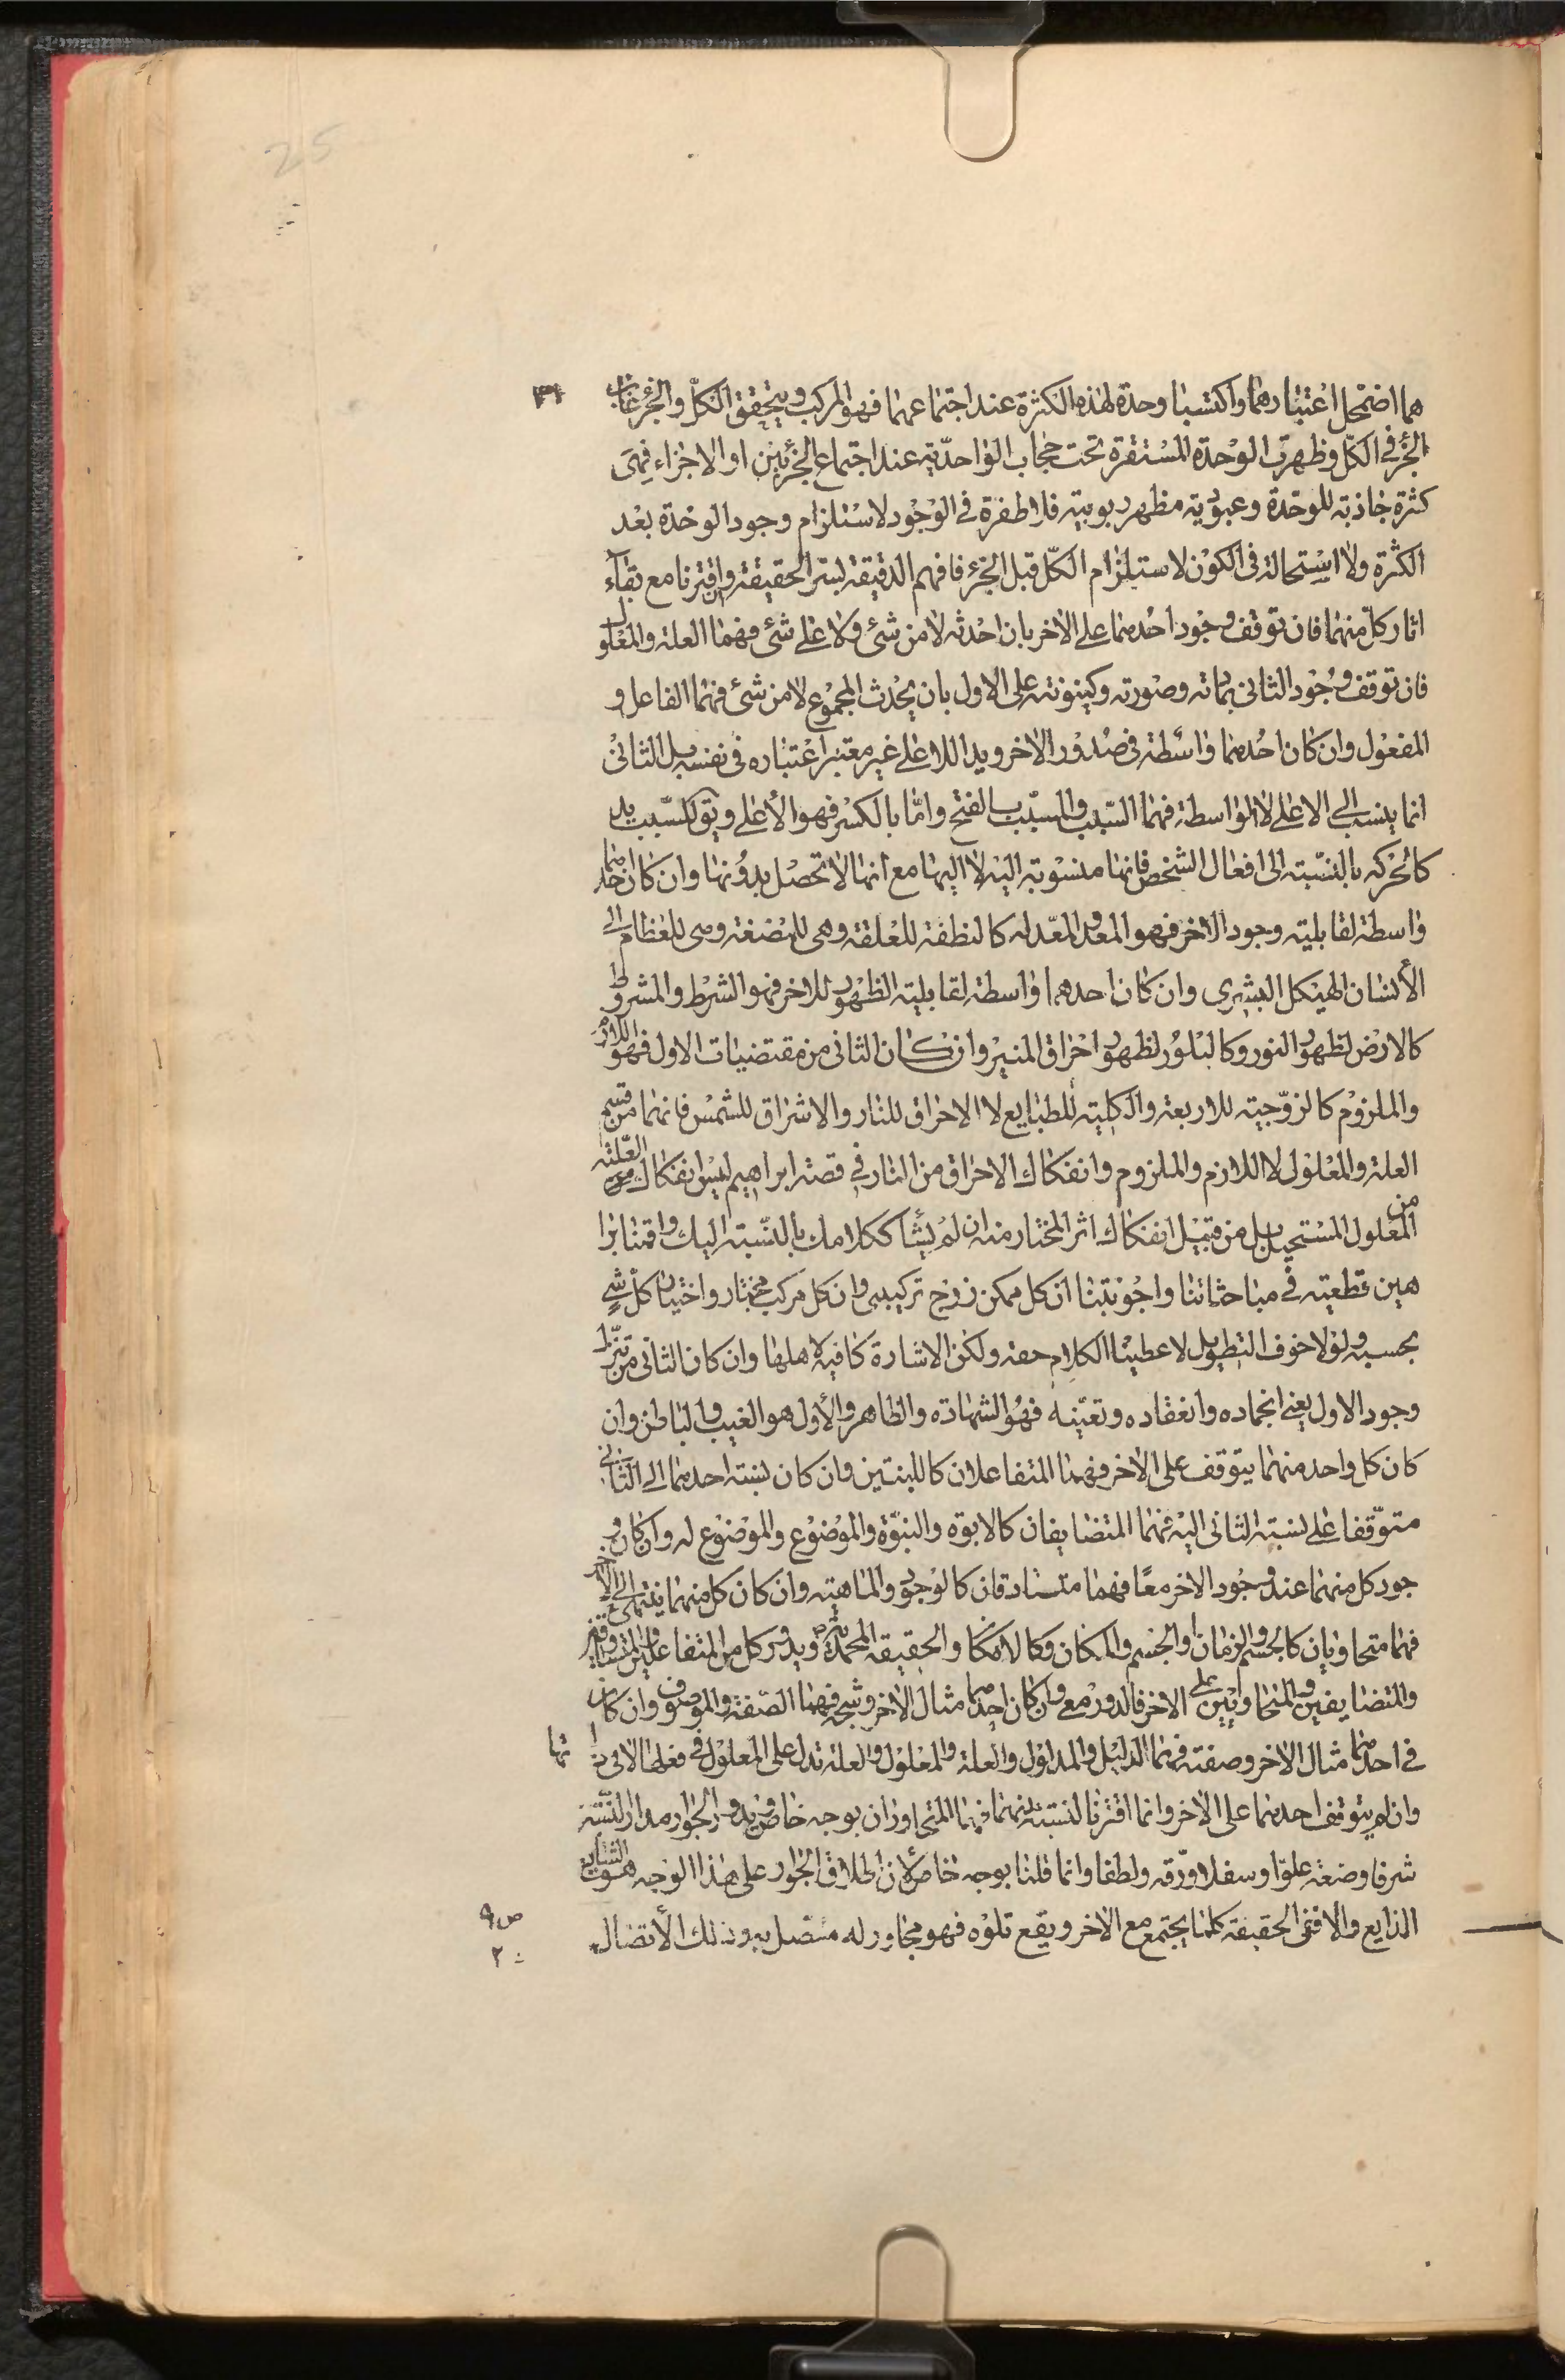 25
هما اضمحل اعتبارهما واكتسبا وحدة لهذه الكثرة عند اجتماعهما فهو المركب ويتحقق الكلّ والجزء غاب
الجزء في الكلّ وظهرت الوحدة المستقرة تحت حجاب الواحديّة عند اجتماع الجزئين او الاجزاء فهي
كثرة جاذبة للوحدة وعبودية مظهر ربوبية فلا طفرة في الوجود لاستلزام وجود الوحدة بعد
الكثرة ولا استحالة في الكون لاستلزام الكلّ قبل الجزء فافهم الدقيقة لسرّ الحقيقة وان اقترنا مع بقاء
اثار كلّ منهما فان توقف وجود احدهما على الاخر بان احدثه لا من شئ ولا على شئ فهما العلة والمعلول
فان توقف وجود الثاني بمادته وصورته وكينونته على الاول بان يحدث المجموع لا من شئ فهما الفاعل و
المفعول وان كان احدهما واسطة في صدور الاخر ويدا للاعلى غير معتبر اعتباره في نفسه بل الثاني
انما ينسب الى الاعلى لا الواسطة فهما السبب والمسبّب بالفتح وامّا بالكسر فهو الأعلى ويق للسبب يد
كالحركة بالنسبة الى افعال الشخص فانها منسوبة اليه لا اليها مع انها لا تحصل بدونها وان كان احدهما
واسطة لقابلية وجود الاخر فهو المعد والمعدّ له كالنطفة للعلقة وهي للمضغة وهي للعظام الى
الأنسان الهيكل البشري وان كان احدهما واسطة لقابلية الظهور للاخر فهو الشرط والمشروط
كالارض لظهور النور وكالبلور لظهور احراق المنير وان كان الثاني من مقتضيات الاول فهو اللازم
والملزوم كالزوجية للاربعة والكلية للطبايع لا الاحراق للنار والاشراق للشمس فانهما من قسم
العلة والمعلول لا اللازم والملزوم وانفكاك الاحراق من النار في قصة ابراهيم ليس انفكاك العلة
من المعلول المستحيل بل من قبيل انفكاك اثر المختار منه ان لم يشأ ككلامك بالنسبة اليك واقمنا برا
هين قطعية في مباحثاتنا واجوبتنا ان كل ممكن زوج تركيبي وان كل مركب مختار واختيار كل شي
بحسبه ولولا خوف التطويل لاعطينا الكلام حقه ولكن الاشارة كافية لاهلها وان كان الثاني من تنزّل
وجود الاول يعني انجماده وانعقاده وتعيّنه فهو الشهادة والظاهر والأول هو الغيب والباطن وان
كان كل واحد منهما يتوقف على الاخر فهما المتفاعلان كاللبنتين وان كان نسبة احدهما الى الثاني
متوقّفا على نسبة الثاني اليه فهما المتضايفان كالابوة والبنوّة والموضوع والموضوع له وان كان و
جود كل منهما عند وجود الاخر معًا فهما متساوقان كالوجود والماهية وان كان كل منهما ينتهى الى الاخر
فهما متحاويان كالجسم والزمان او الجسم والمكان وكالامكان والحقيقة المحمدية ويدور كل من المتفاعلين والمتساوقين
والمتضايفين والمتحاوئين على الاخر فالدور معي وان كان احدهما مثال الاخر وشبحه فهما الصّفة والموصوف وان كان
في احدهما مثال الاخر وصفته فهما الدليل والمدلول والعلة والمعلول والعلة تدل على المعلول في فعلها لا في ذا تها
وان لم يتوقف احدهما على الاخر وانما اقترنا لنسبة بينهما فهما المتجاوران بوجه خاص ويدور الجوار مدار النسبة
شرفا وضعة علوّا وسفلا ورّقة ولطفا وانما قلنا بوجه خاص لأن اطلاق الجوار على هذا الوجه هو الشايع
الذايع والا ففي الحقيقة كلما يجتمع مع الاخر ويقع تلوه فهو مجاور له متصل به وذلك الأتصال